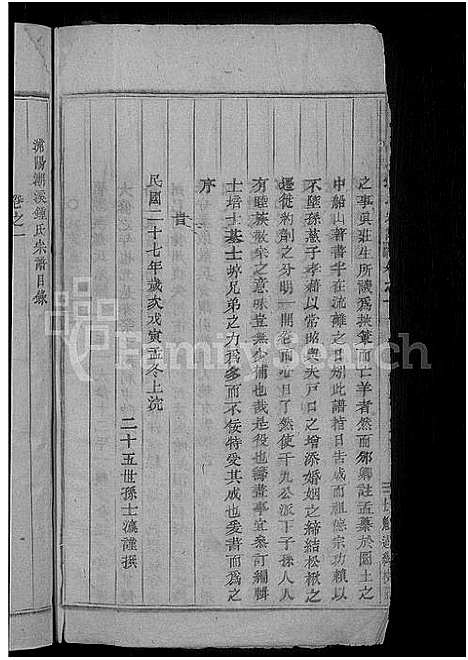 之事真莊生所謂爲挾筴而亡羊者然而邠卿註孟藥於圜土之
中船山著書半在流離之日矧此譜楷日告成而祖德宗功賴以
不墜孫慈子孝藉以常昭與夫戶口之增添婚姻之締結松楸之
遷從約劑之分明一開卷而心目了然使千九公派下子孫人人
有睦族敬宗之意味豈無少補也哉是役也籌畫事宜參訂編輯
士培士基士 兄弟之力爲多而不佞特受其成也爰書而爲之
序
 旹
民國二十七年歲次戊寅孟冬上浣
二十五世孫士 謹撰
湖溪鍾氏宗譜目錄
卷之一
FamilySearch